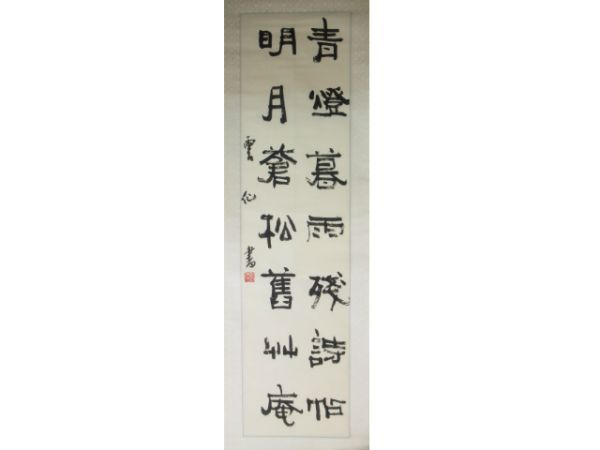 青燈暮雨殘詩帖
明月蒼松舊艸庵
雲仙書